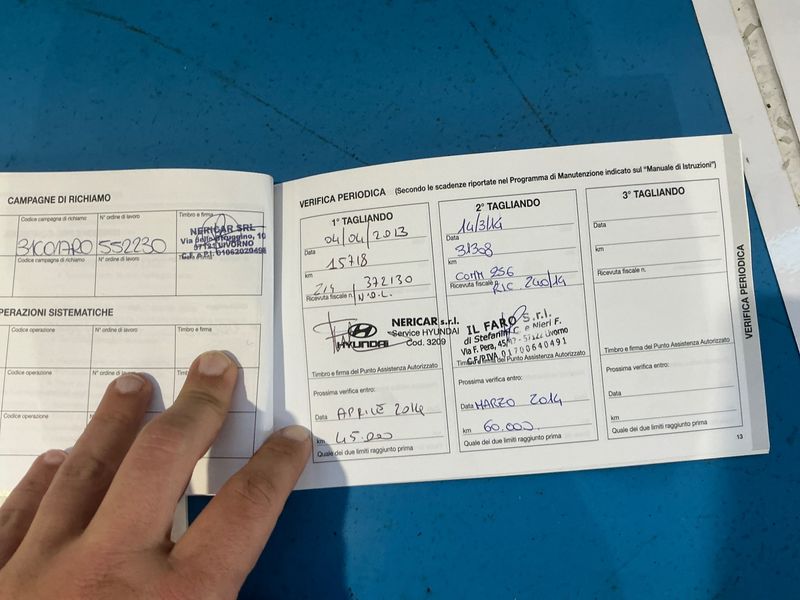 CAMPAGNE DI RICHIAMO
Codice campagna di richiamo
N° ordine di lavoro
Timbro e firma
31C01ARO
552230
NERICAR SRL
57121 LIVORNO
Codice campagna di richiamo
N° ordine di lavoro
OPERAZIONI SISTEMATICHE
Codice operazione
N° ordine di lavoro
Timbro e firma
Codice operazione
N° ordine di lavoro
Codice operazione
VERIFICA PERIODICA (Secondo le scadenze riportate nel Programma di Manutenzione indicato sul "Manuale di Istruzioni")
1° TAGLIANDO
04/04/2013
Data
15718
km
214 372130
Ricevuta fiscale n.
N.O.L.
HYUNDAI
NERICAR s.r.l.
Service HYUNDAI
Cod. 3209
Timbro e firma del Punto Assistenza Autorizzato
Prossima verifica entro:
Data APRILE 2014
km 45.000
Quale dei due limiti raggiunto prima
2° TAGLIANDO
14/3/14
Data
31308
km
COMM 956
Ricevuta fiscale n.
RIC 240/14
IL FARO s.r.l.
di Stefanini C. e Nieri F.
Via F. Pera, 45/47 - 57124 Livorno
C.F./P.IVA 01700640491
Timbro e firma del Punto Assistenza Autorizzato
Prossima verifica entro:
Data MARZO 2014
km 60.000
Quale dei due limiti raggiunto prima
3° TAGLIANDO
Data
km
Ricevuta fiscale n.
Timbro e firma del Punto Assistenza Autorizzato
Prossima verifica entro:
Data
km
Quale dei due limiti raggiunto prima
VERIFICA PERIODICA
13